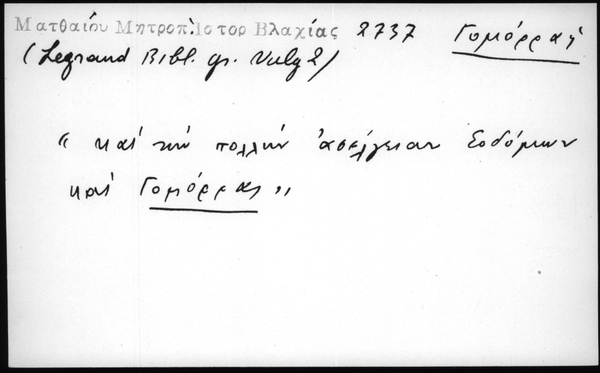 Ματθαίου Μητροπ. Ιστορ Βλαχίας 2737 Γομόρρας
(Legrand Bibl. gr. Vulg 2)
" καί τήν πολλήν ἀσέλγειαν Σοδόμων
καί Γομόρρας "